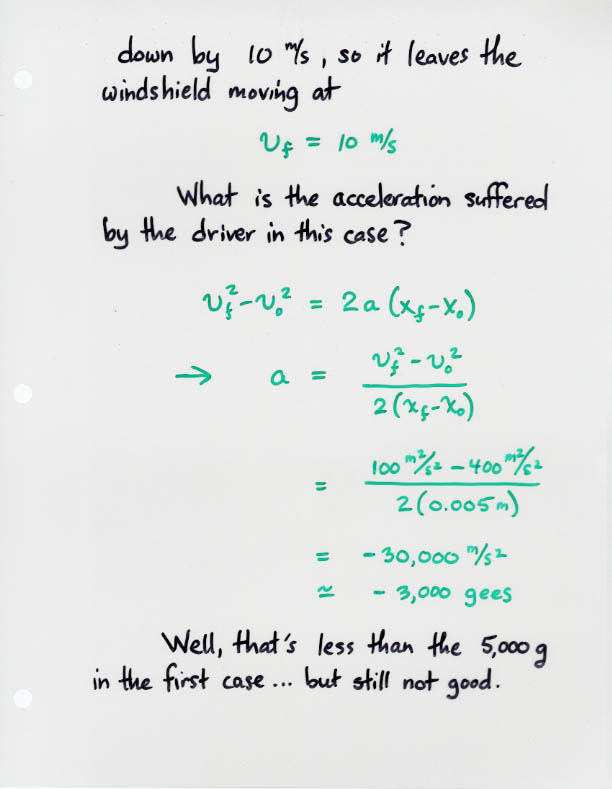 down by 10 m/s, so it leaves the
windshield moving at
v_f = 10 m/s
What is the acceleration suffered
by the driver in this case?
v_f² - v₀² = 2a (x_f - x₀)
→ a = (v_f² - v₀²) / (2(x_f - x₀))
= (100 m²/s² - 400 m²/s²) / (2(0.005 m))
= -30,000 m/s²
≃ -3,000 gees
Well, that's less than the 5,000 g
in the first case ... but still not good.